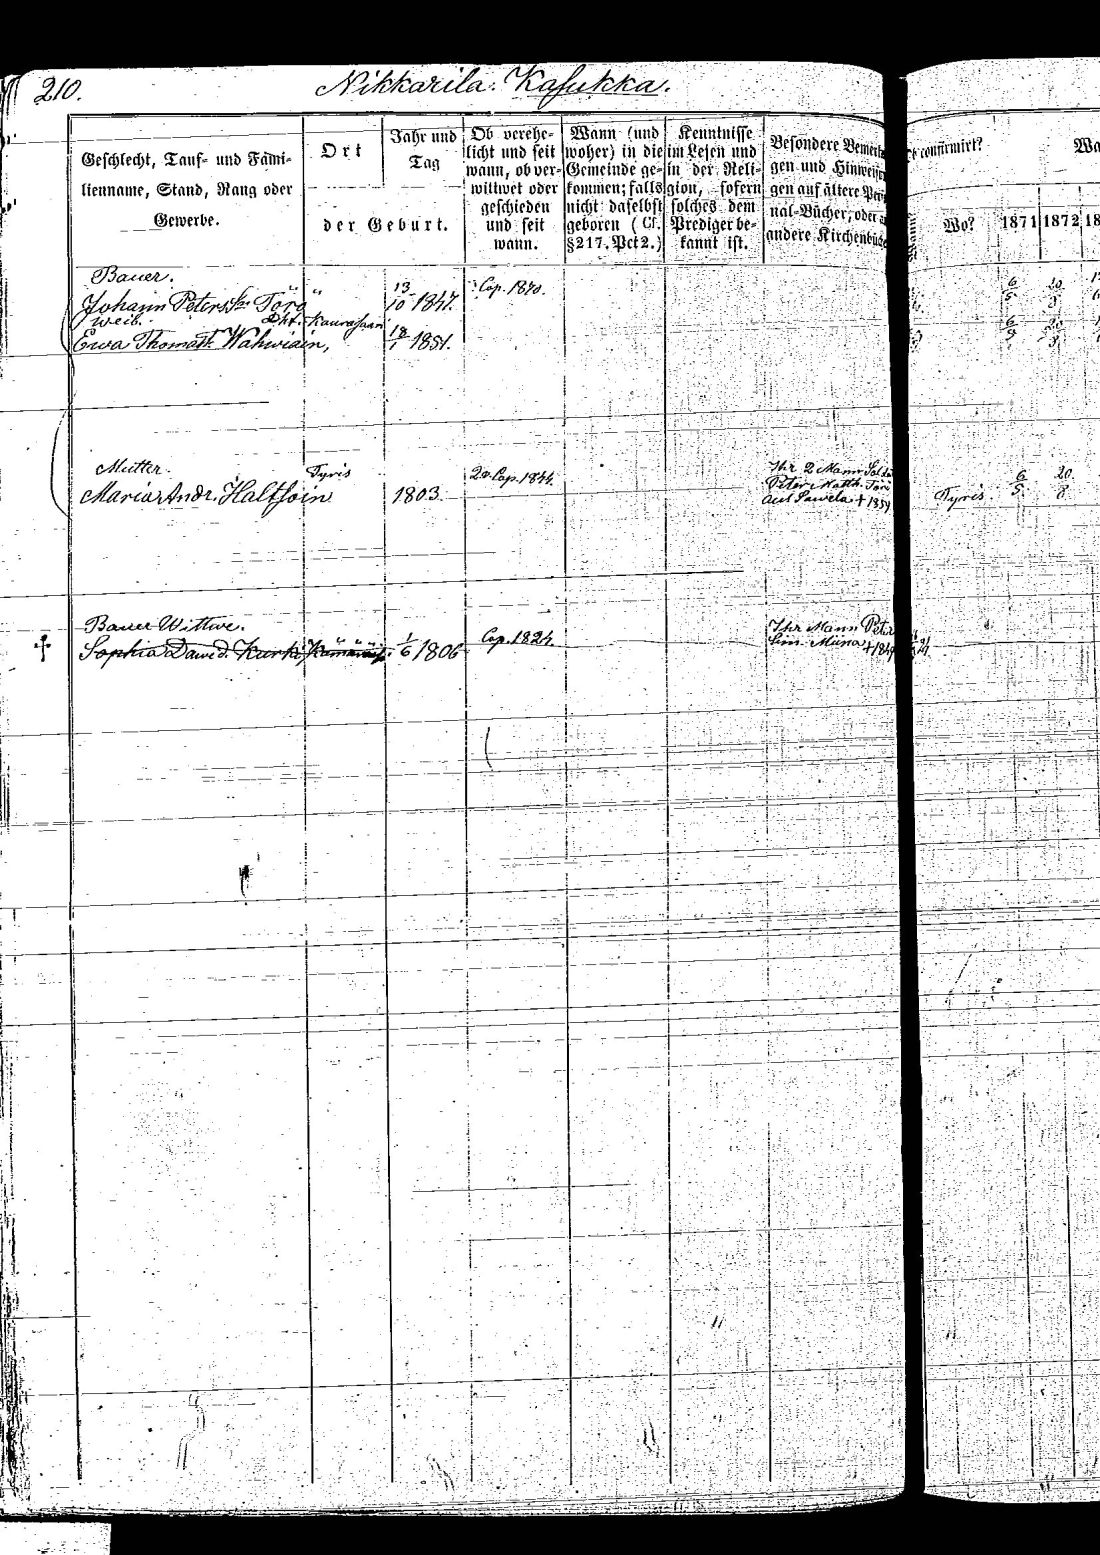 210.
Nikkarila. Kasukka.
Geschlecht, Tauf- und Fami-
lienname, Stand, Rang oder
Gewerbe.
Ort
Jahr und
Tag
der Geburt.
Ob verehe-
licht und seit
wann, ob ver-
wittwet oder
geschieden
und seit
wann.
Wann (und
woher) in die
Gemeinde ge-
kommen; falls
nicht daselbst
geboren (Cf.
§217. Pct 2.)
Kenntnisse
im Lesen und
in der Reli-
gion, sofern
solches dem
Prediger be-
kannt ist.
Besondere Bemerk
gen und Hinweis
gen auf ältere Per
nal-Bücher, oder a
andere Kirchenbüche
confirmirt?
Wa
Wann?
Wo?
1871 1872 18
Bauer.
Johann Peters Sn Törö " 13/10 1847. Cop. 1870. 6/5 20/8
Weib. Dht.
Ewa Thomas T. Wahwiain, 18/1 1851. 6/5 20/8
Mutter. Tyris
Maria Andr. Haltsoin 1803. 2te Cop. 1844. Tyris 6/5 20/8
Ihr 2 Mann Solda
Peter Matth. Törö
aus Sawela † 1854
Bauer Wittwe.
Sophia Dawe d. Kurki 1/6 1806 Cop. 1824.
Ihr Mann Peter
Sim.